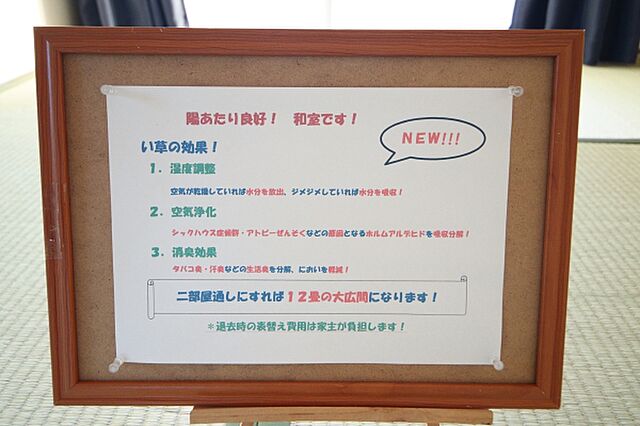 陽あたり良好！　和室です！
NEW!!!
い草の効果！
1．湿度調整
空気が乾燥していれば水分を放出、ジメジメしていれば水分を吸収！
2．空気浄化
シックハウス症候群・アトピーぜんそくなどの原因となるホルムアルデヒドを吸収分解！
3．消臭効果
タバコ臭・汗臭などの生活臭を分解、においを軽減！
二部屋通しにすれば12畳の大広間になります！
＊退去時の表替え費用は家主が負担します！